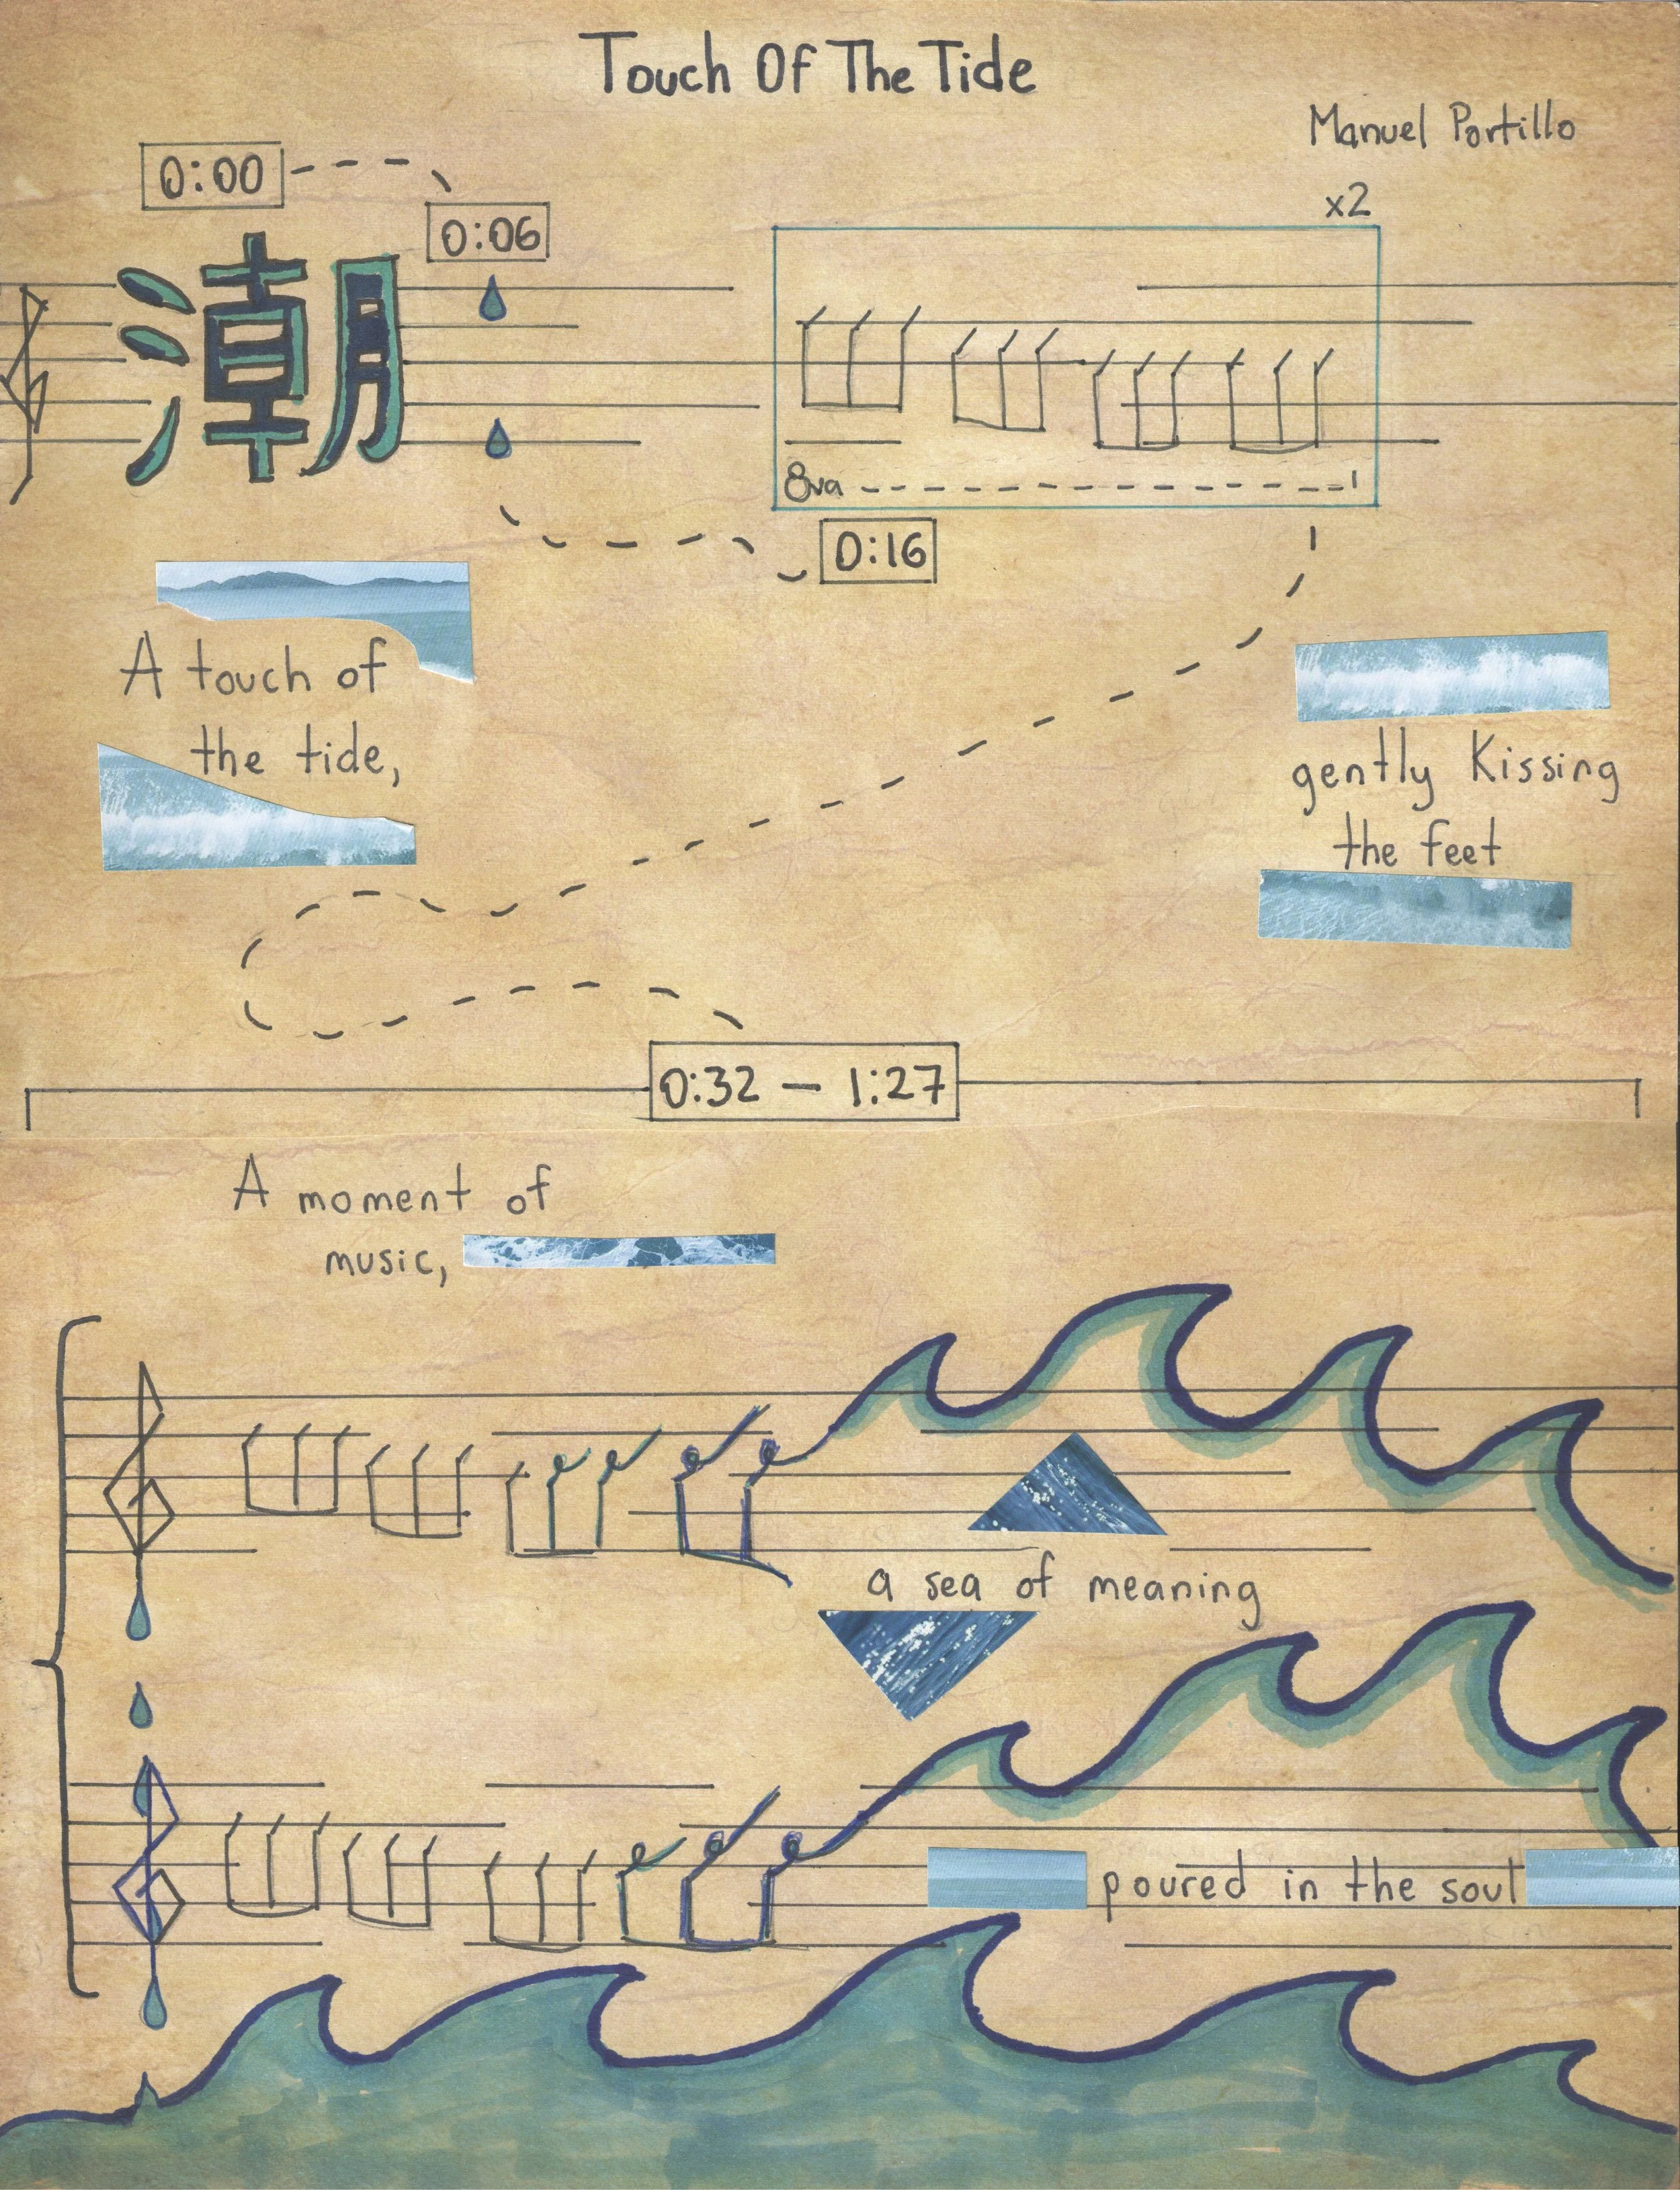 Touch Of The Tide
Manuel Portillo
0:00
0:06
x2
潮
8va
0:16
A touch of
the tide,
gently kissing
the feet
0:32 – 1:27
A moment of
music,
a sea of meaning
poured in the soul